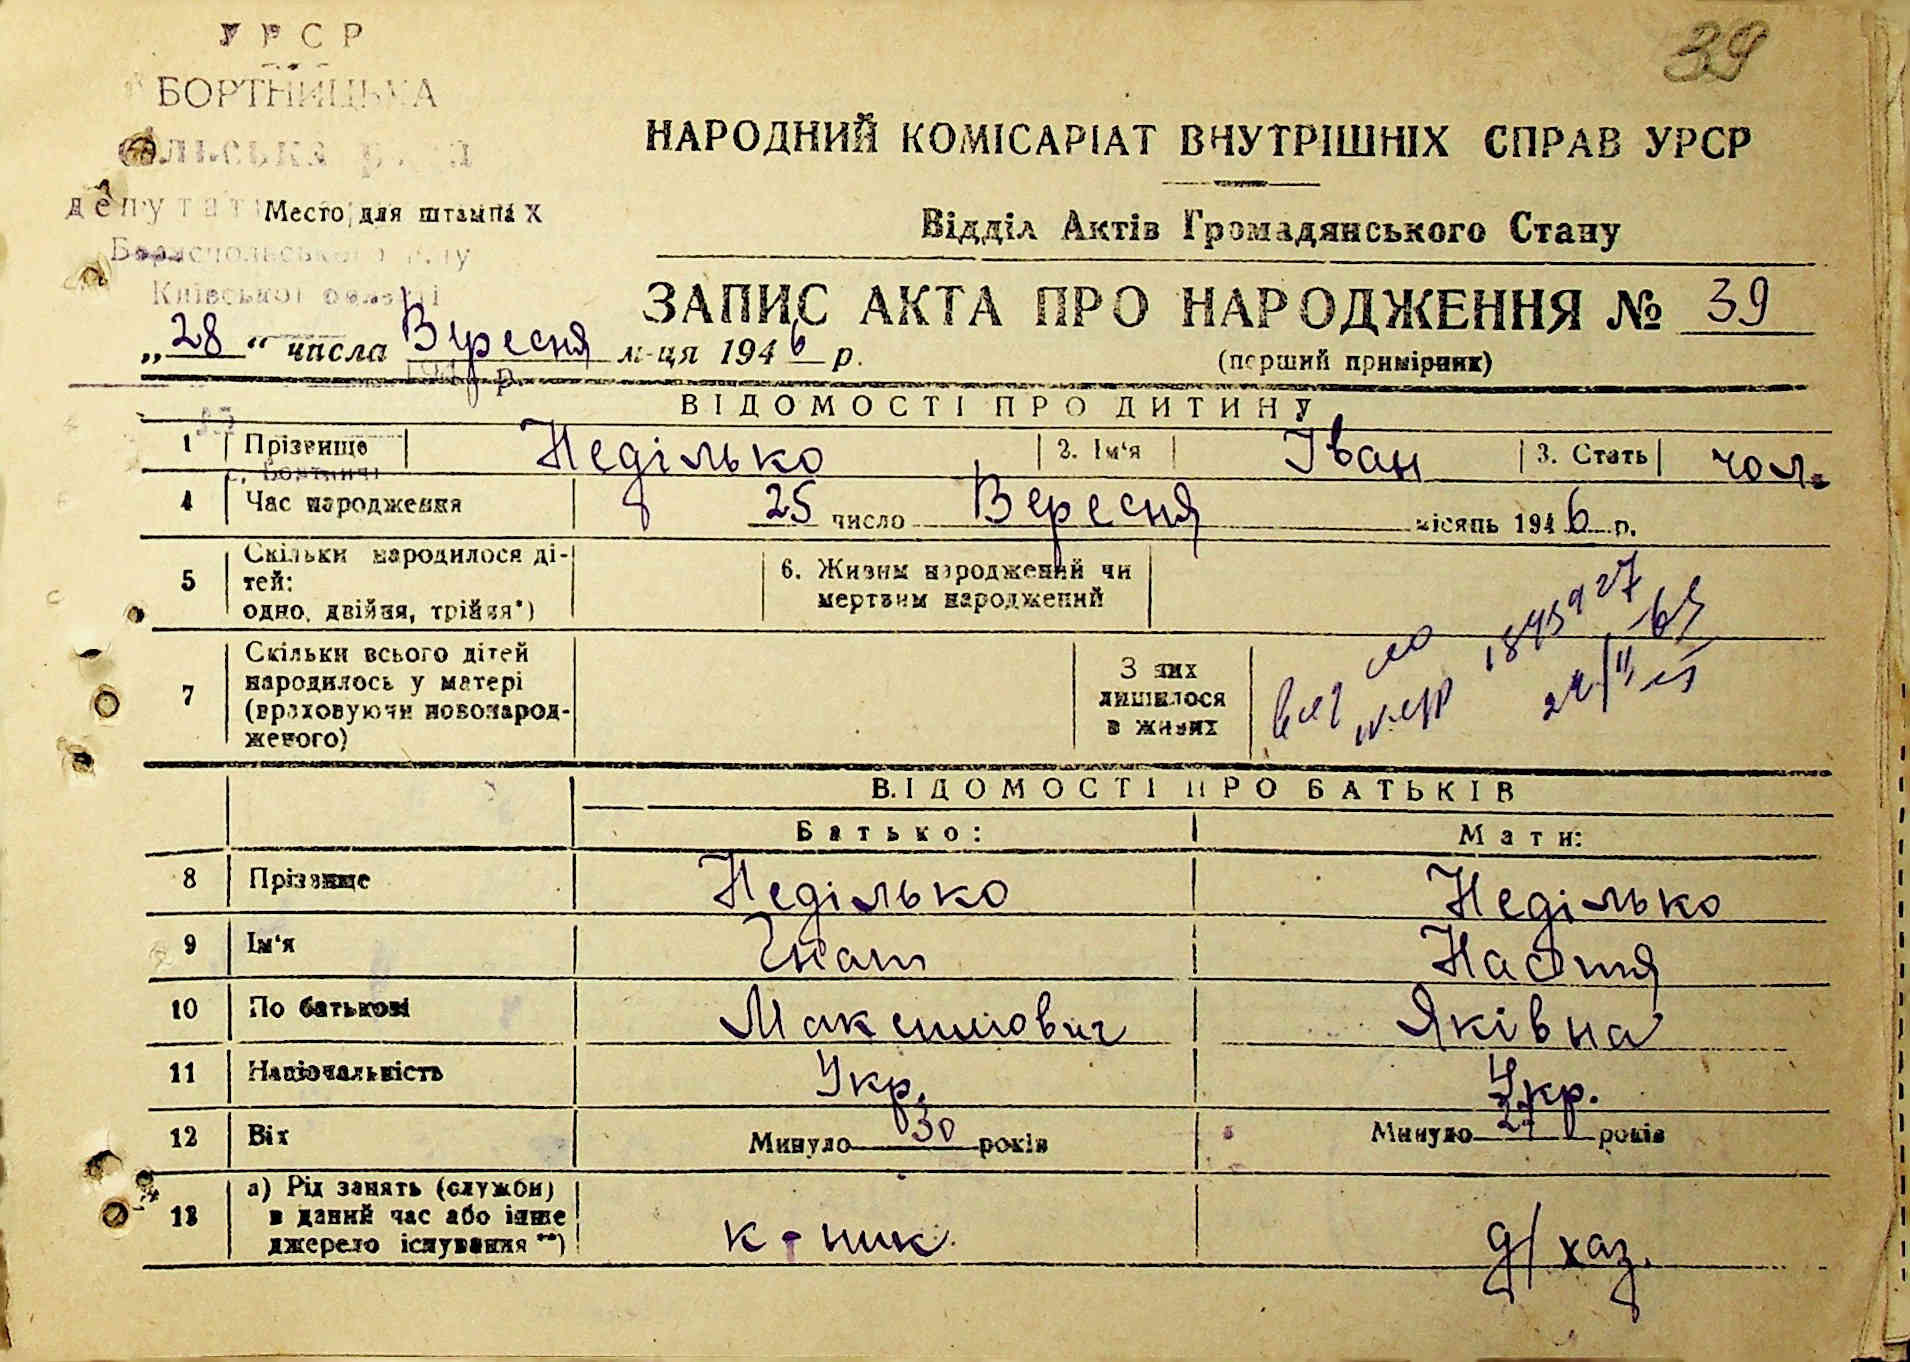 39
УРСР
БОРТНИЦЬКА
сільська рада
депутатів
Место для штампа
Бориспольського р-ну
Київської області
НАРОДНИЙ КОМІСАРІАТ ВНУТРІШНІХ СПРАВ УРСР
Відділ Актів Громадянського Стану
ЗАПИС АКТА ПРО НАРОДЖЕННЯ № 39
(перший примірник)
„28“ числа Вересня м-ця 1946 р.
ВІДОМОСТІ ПРО ДИТИНУ
1 Прізвище Неділько 2. Ім'я Іван 3. Стать чол.
с. Бортничі
4 Час народження 25 число Вересня місяць 1946 р.
5 Скільки народилося ді-
тей:
одно, двійня, трійня*)
6. Живим народжений чи
мертвим народжений
7 Скільки всього дітей
народилось у матері
(враховуючи новонарод-
женого)
З них
лишилося
в живих
ВІДОМОСТІ ПРО БАТЬКІВ
Батько: Мати:
8 Прізвище Неділько Неділько
9 Ім'я Гнат Настя
10 По батькові Максимович Яківна
11 Національність Укр. Укр.
12 Вік Минуло 30 років Минуло 27 років
13 а) Рід занять (служби)
в даний час або інше
джерело існування**)
к-ник д/хаз.